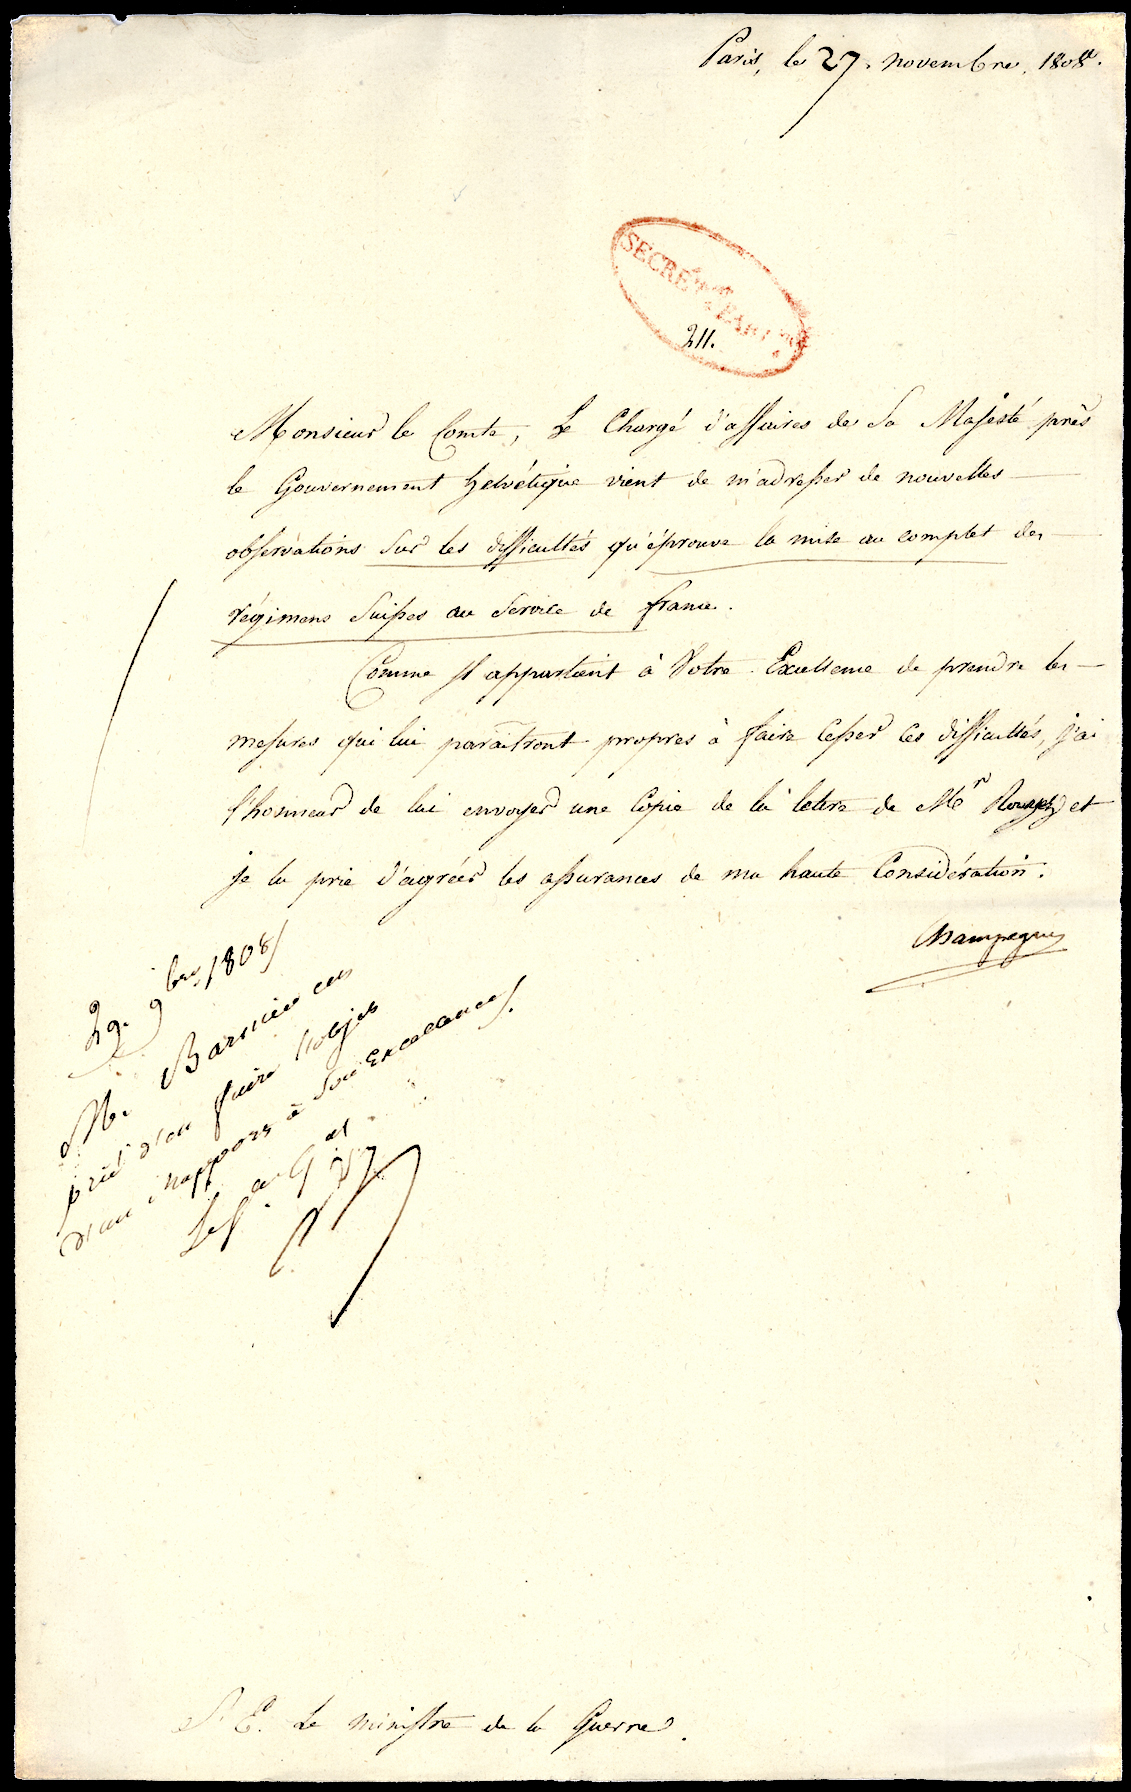 Paris, le 27. novembre. 1808.
SECRÉT
211.
Monsieur le Comte, Le Chargé d'affaires de Sa Majesté près
le Gouvernement helvétique vient de m'adresser de nouvelles
observations sur les difficultés qu'éprouve la mise au complet des
régimens suisses au service de france.
Comme il appartient à Votre Excellence de prendre les
mesures qui lui paraîtront propres à faire cesser ces difficultés, j'ai
l'honneur de lui envoyer une Copie de la lettre de Mr Rouyer et
je la prie d'agréer les assurances de ma haute Considération.
Champagny
29. 9bre 1808
M. Barnier est
prié d'en faire l'objet
d'un rapport à Son Excellence.
Le
S. E. Le ministre de la Guerre.